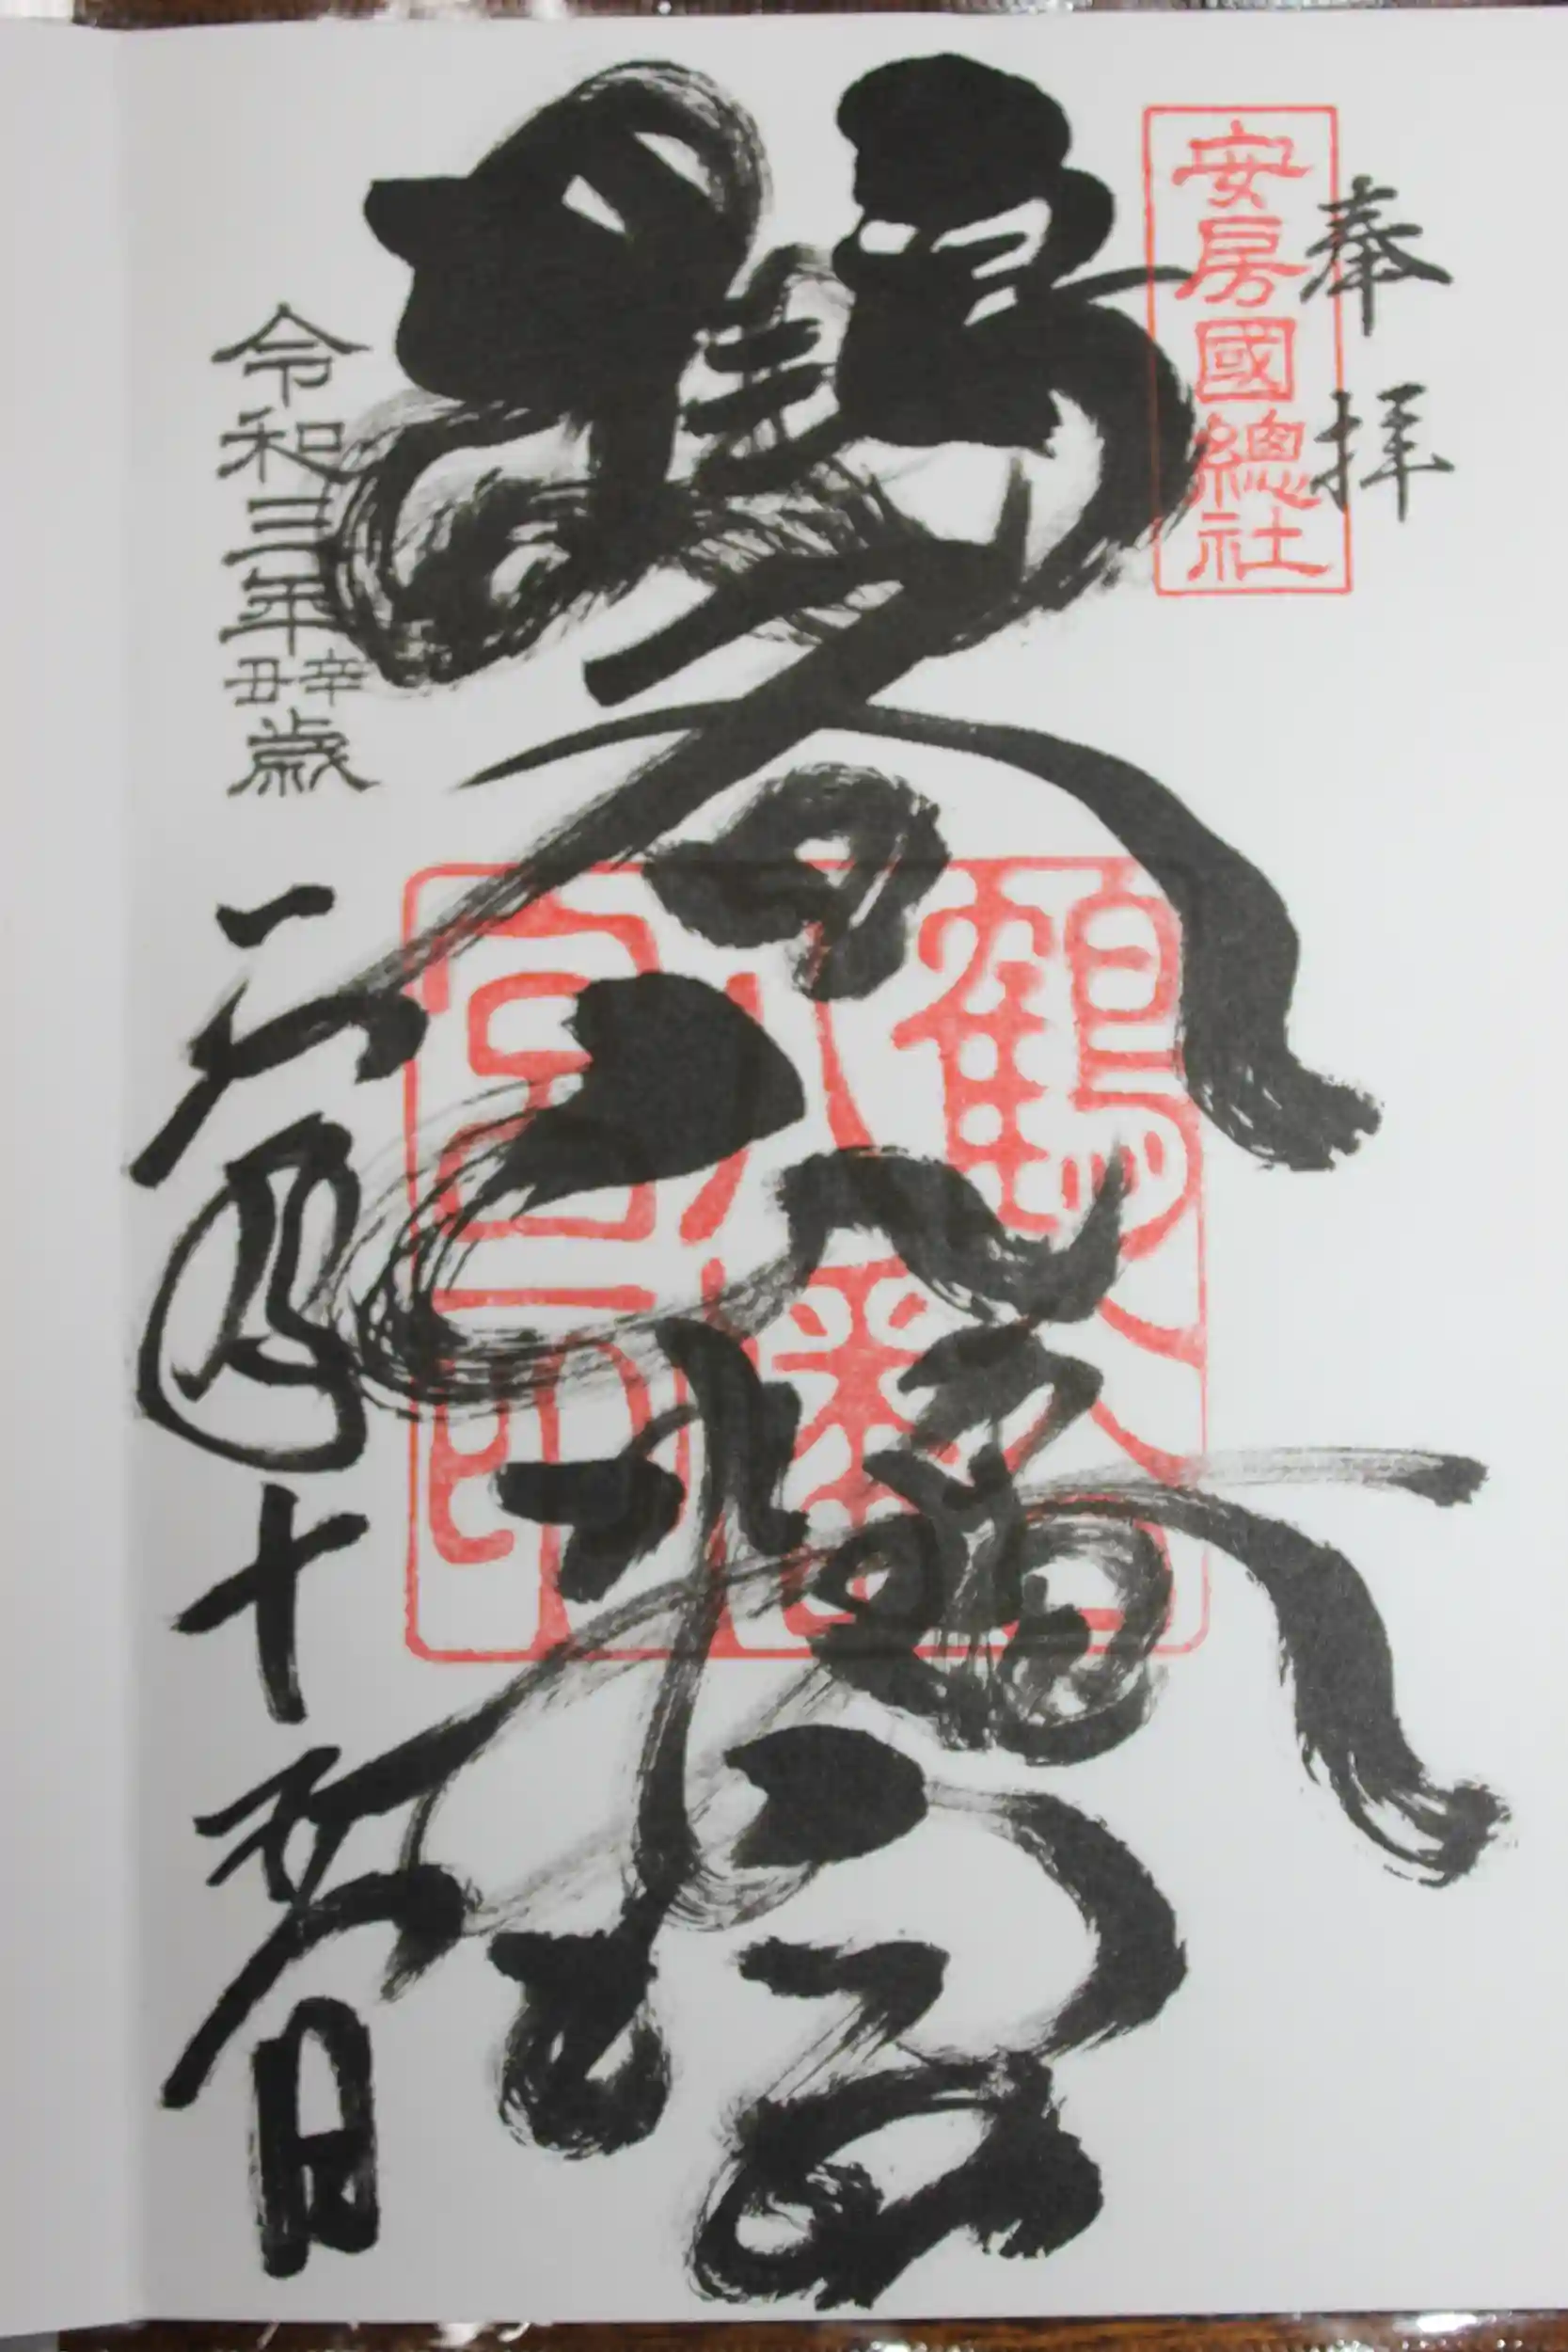 奉拝
安房國總社
鶴谷八幡宮
鶴谷
八幡
宮印
令和三年辛丑歳二月十五日